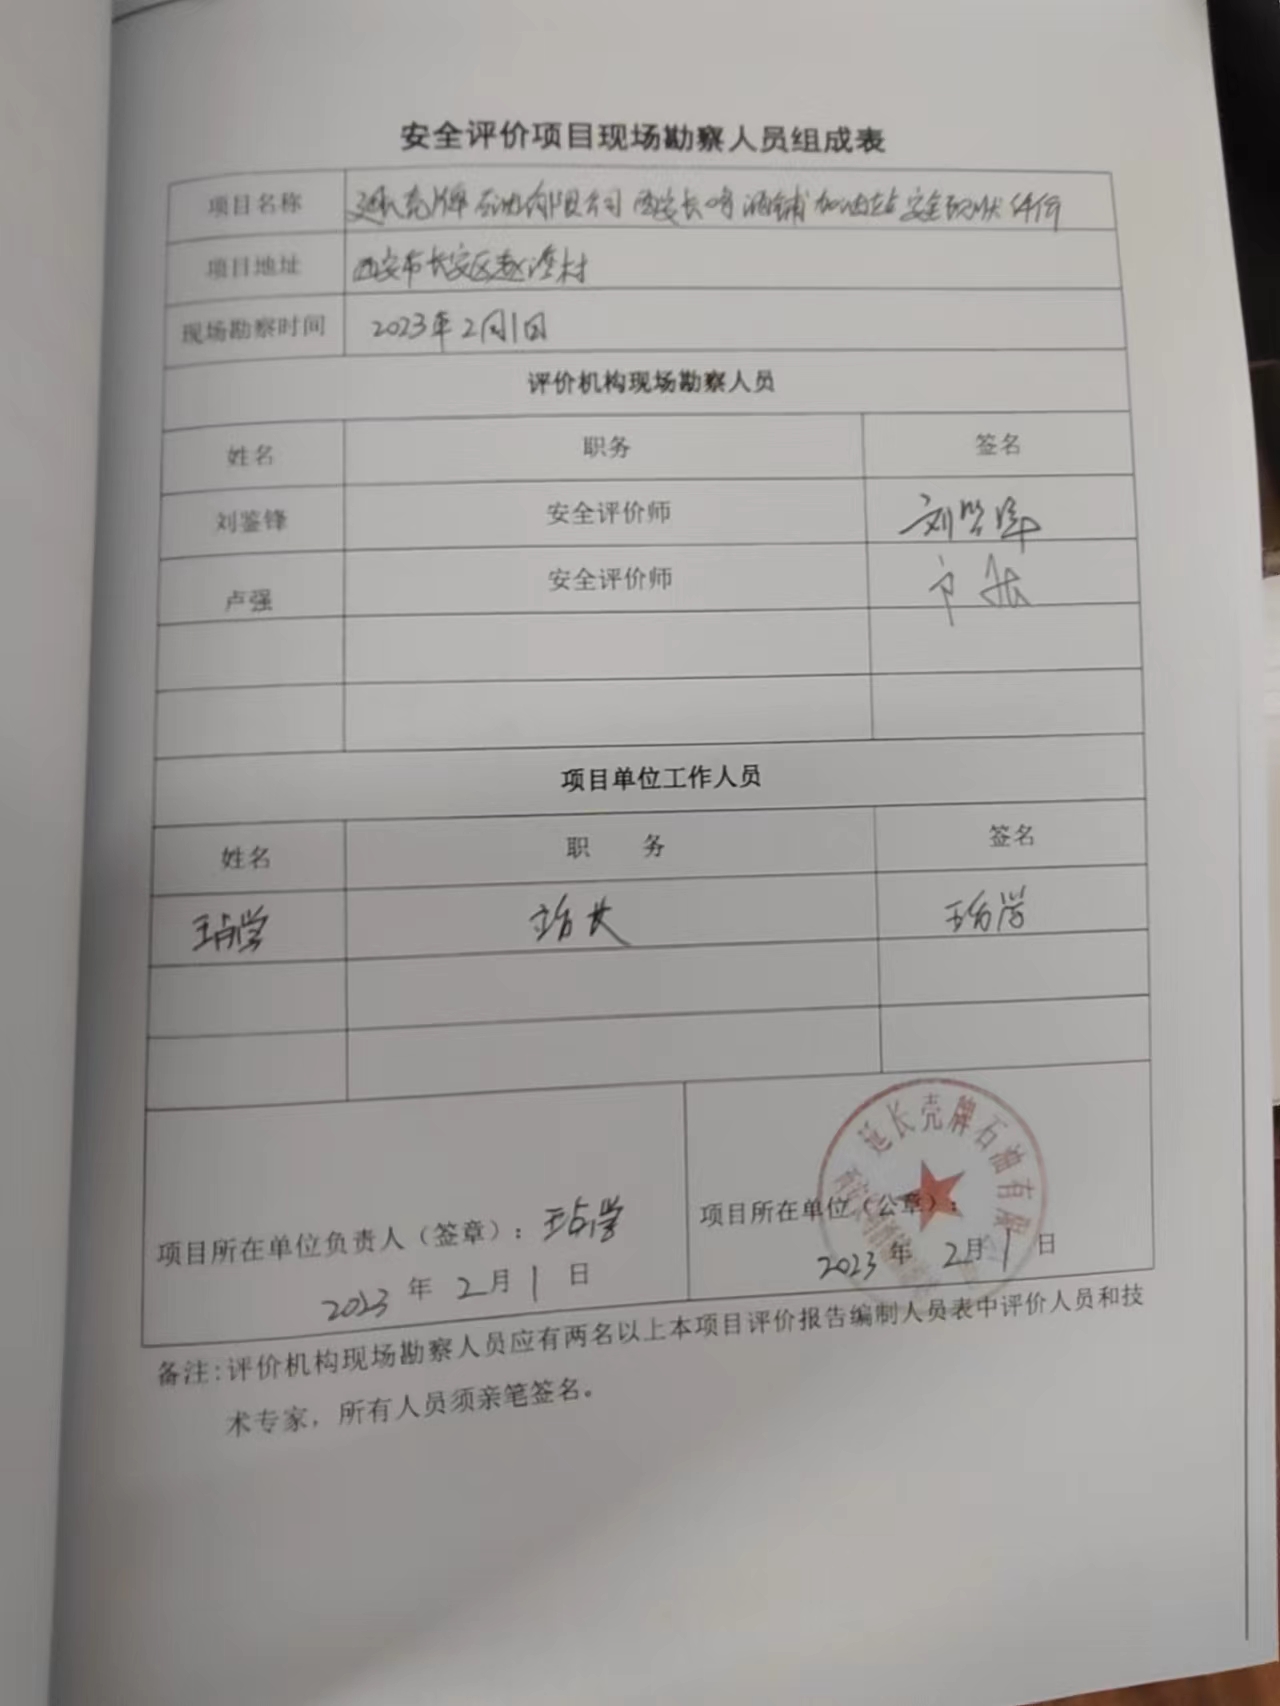 安全评价项目现场勘察人员组成表
项目名称 延长壳牌石油有限公司西安长 加油站安全现状评价
项目地址 西安市长安区 村
现场勘察时间 2023年2月1日
评价机构现场勘察人员
姓名 职务 签名
刘鉴锋 安全评价师 刘鉴锋
卢强 安全评价师 卢强
项目单位工作人员
姓名 职 务 签名
王占学 站长 王占学
项目所在单位负责人（签章）：王占学
2023年2月1日
延长壳牌石油有限
项目所在单位（公章）：
2023年2月1日
备注：评价机构现场勘察人员应有两名以上本项目评价报告编制人员表中评价人员和技
术专家，所有人员须亲笔签名。